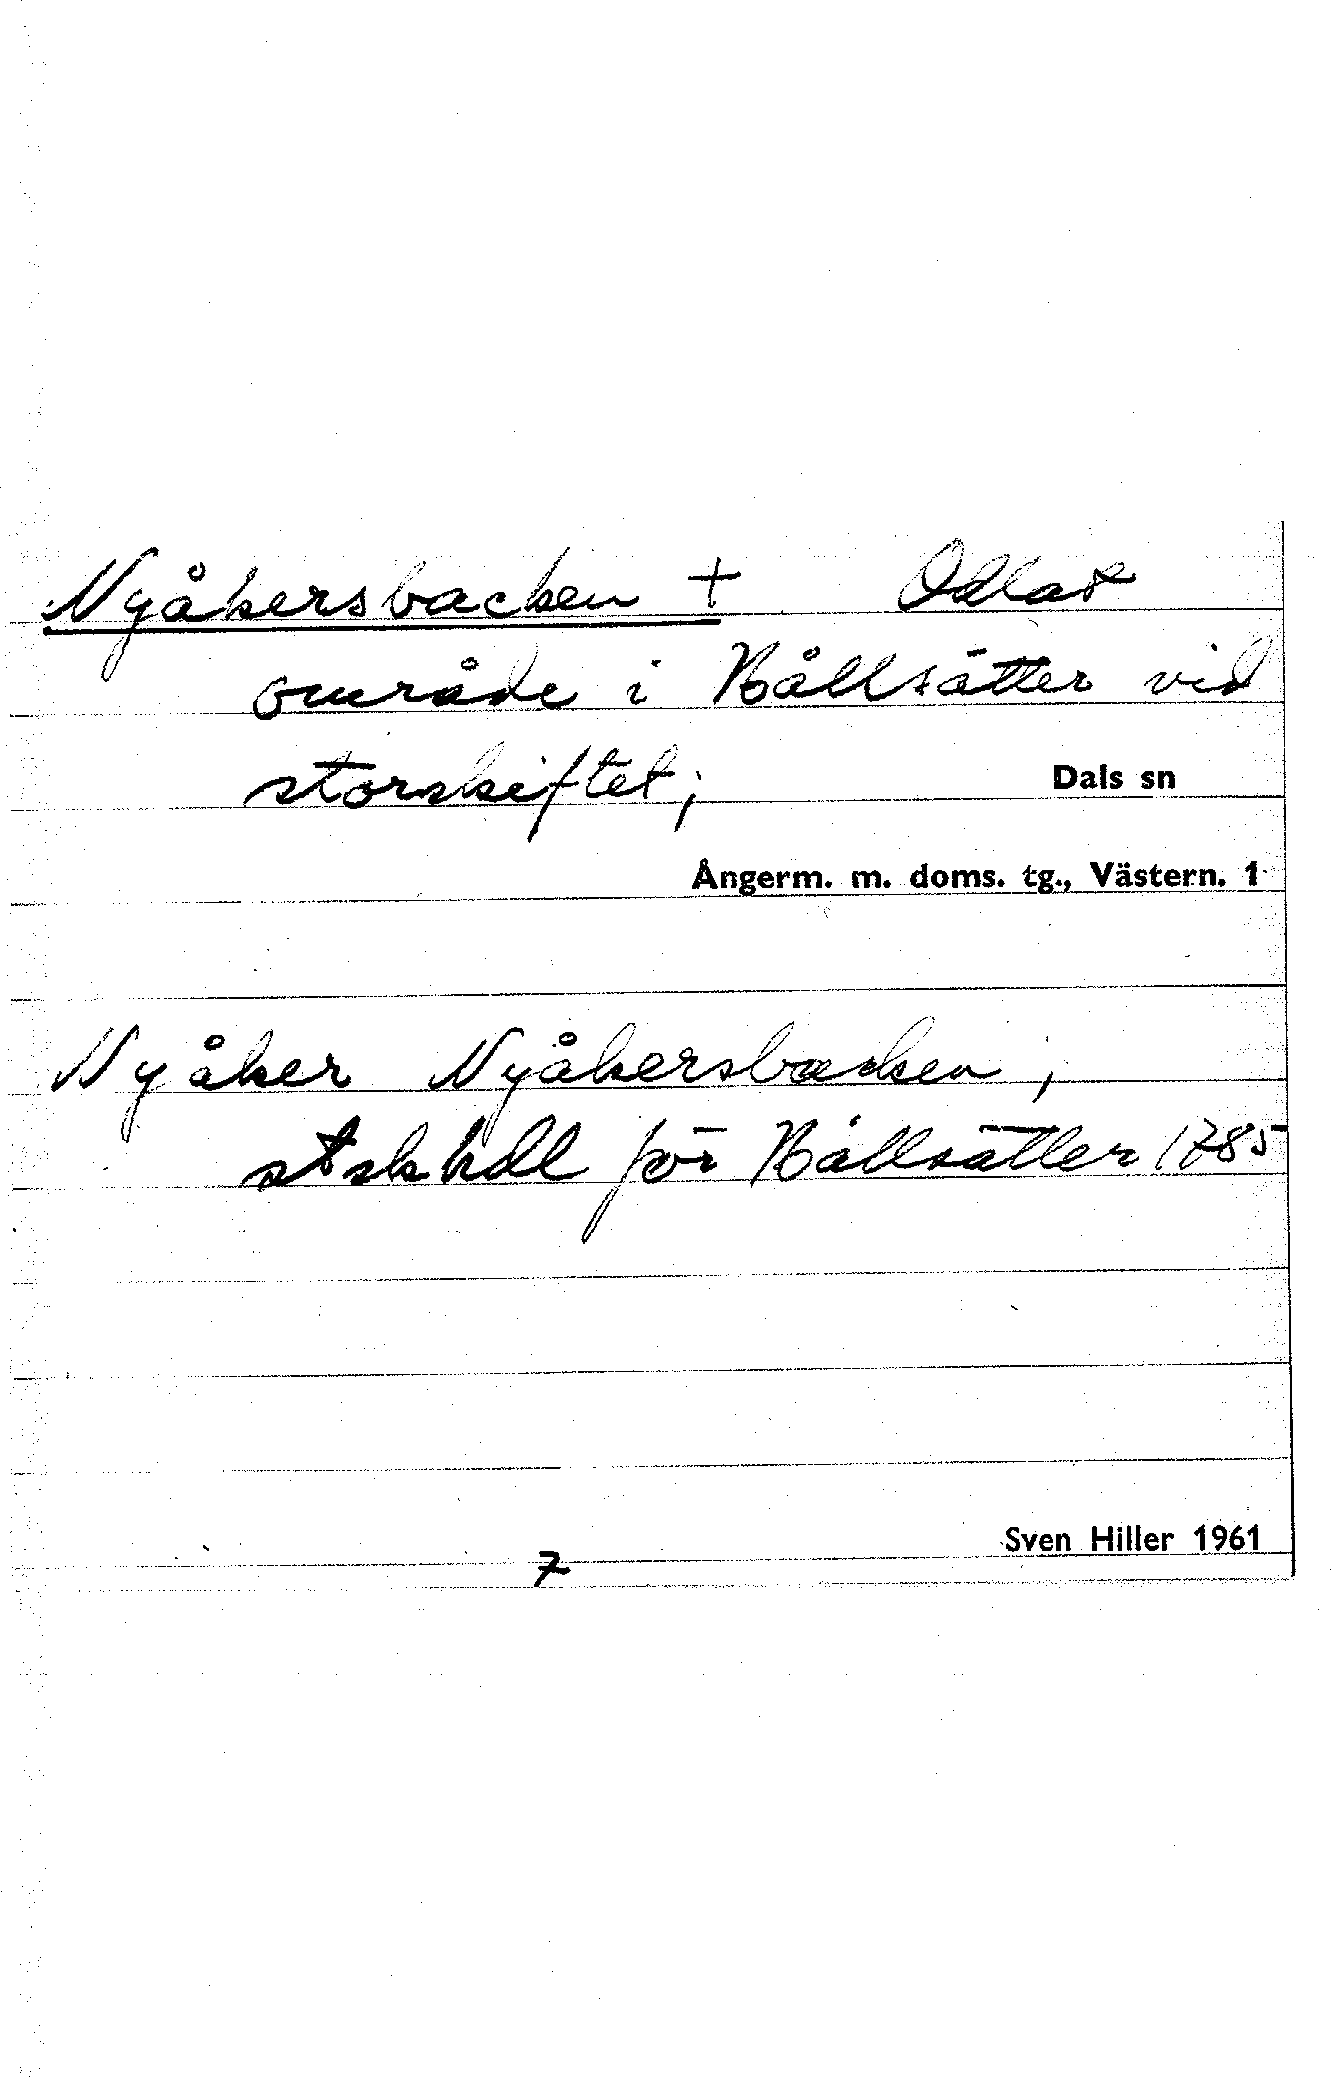 Nyåkersbacken + Odlat
område i Bållsätter vid
storskiftet;
Dals sn
Ångerm. m. doms. tg., Västern. 1
Nyåker Nyåkersbacken,
stsk hdl för Bållsätter 1785
Sven Hiller 1961
7